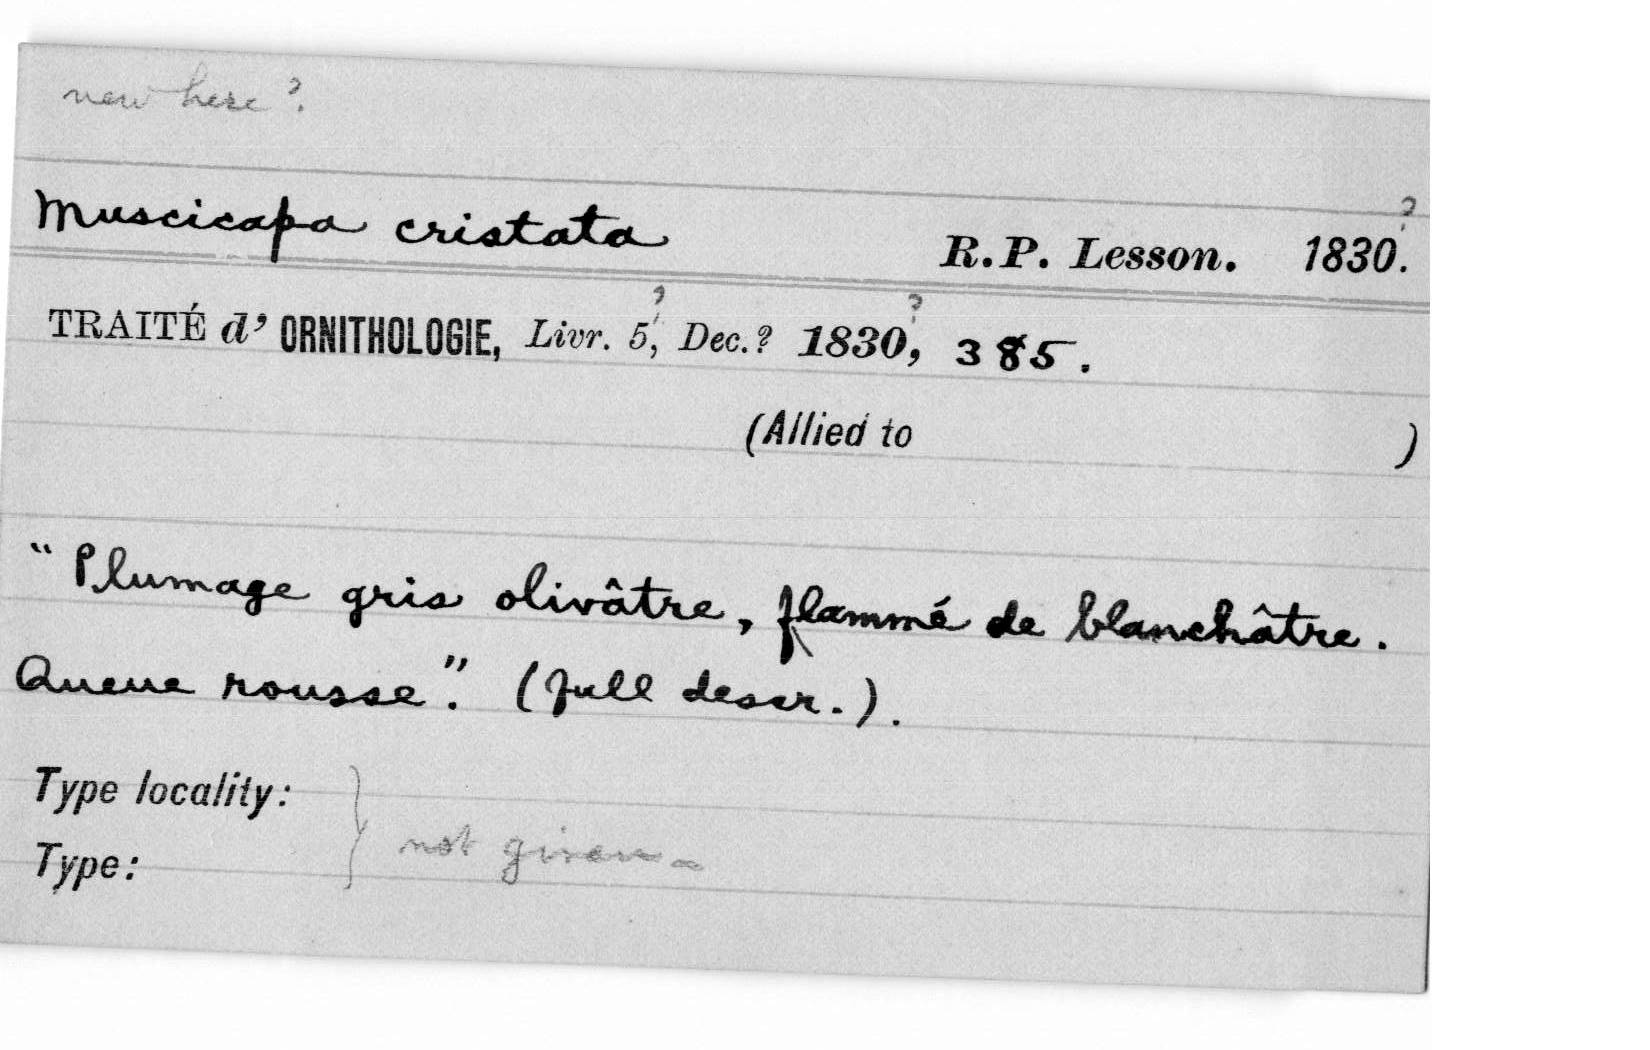 new here?
Muscicapa cristata R.P. Lesson. 1830?.
TRAITÉ d' ORNITHOLOGIE, Livr. 5?, Dec.? 1830?, 385.
(Allied to )
"Plumage gris olivâtre, flammé de blanchâtre.
Queue rousse". (full descr.).
Type locality: } not given
Type: